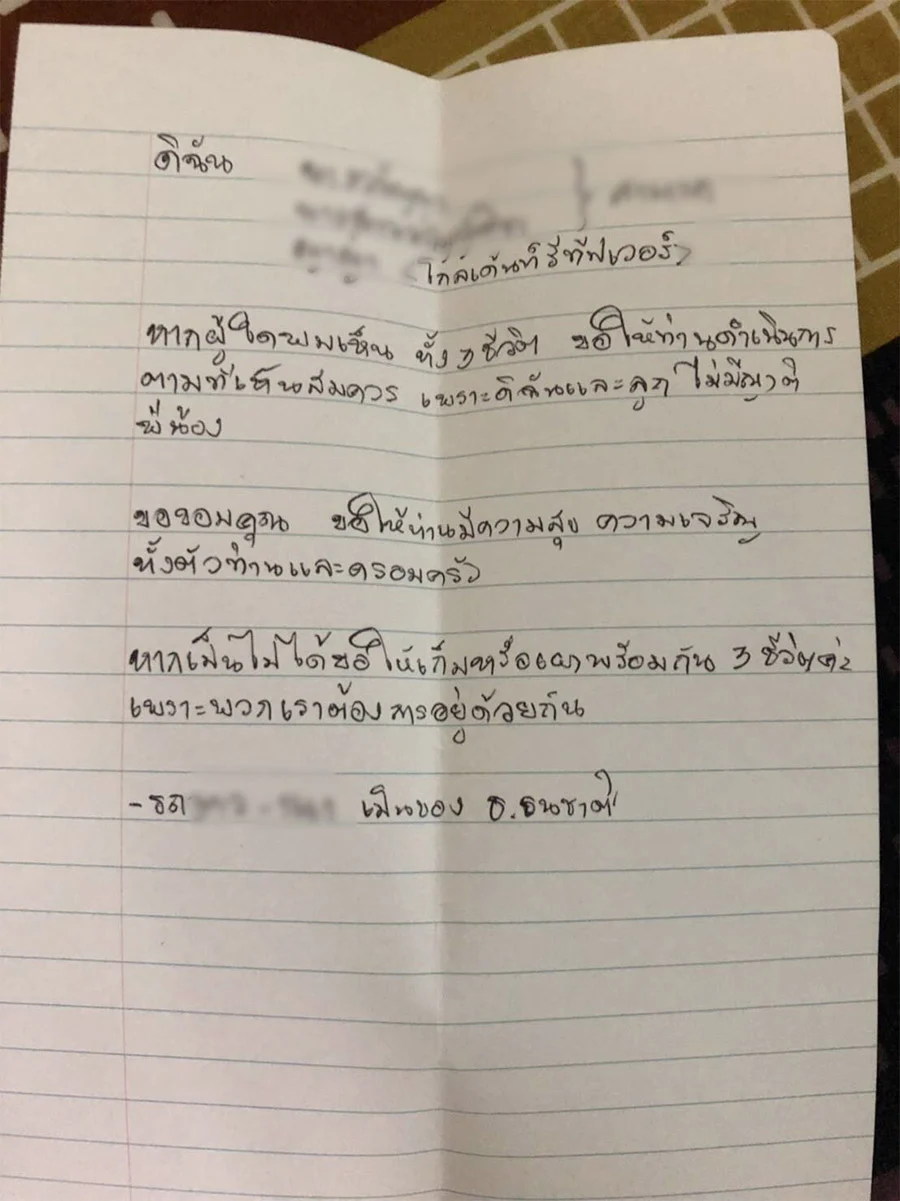 ดิฉัน
โกลเด้นท์ รีทีฟเวอร์
หากผู้ใดพบเห็น ทั้ง 3 ชีวิต ขอให้ท่านดำเนินการ
ตามที่เห็นสมควร เพราะดิฉันและลูก ไม่มีญาติ
พี่น้อง
ขอขอบคุณ ขอให้ท่านมีความสุข ความเจริญ
ทั้งตัวท่านและครอบครัว
หากเป็นไปได้ขอให้เก็บหรือเผาพร้อมกัน 3 ชีวิตค่ะ
เพราะพวกเราต้องการอยู่ด้วยกัน
-รถ เป็นของ ธ.ธนชาต